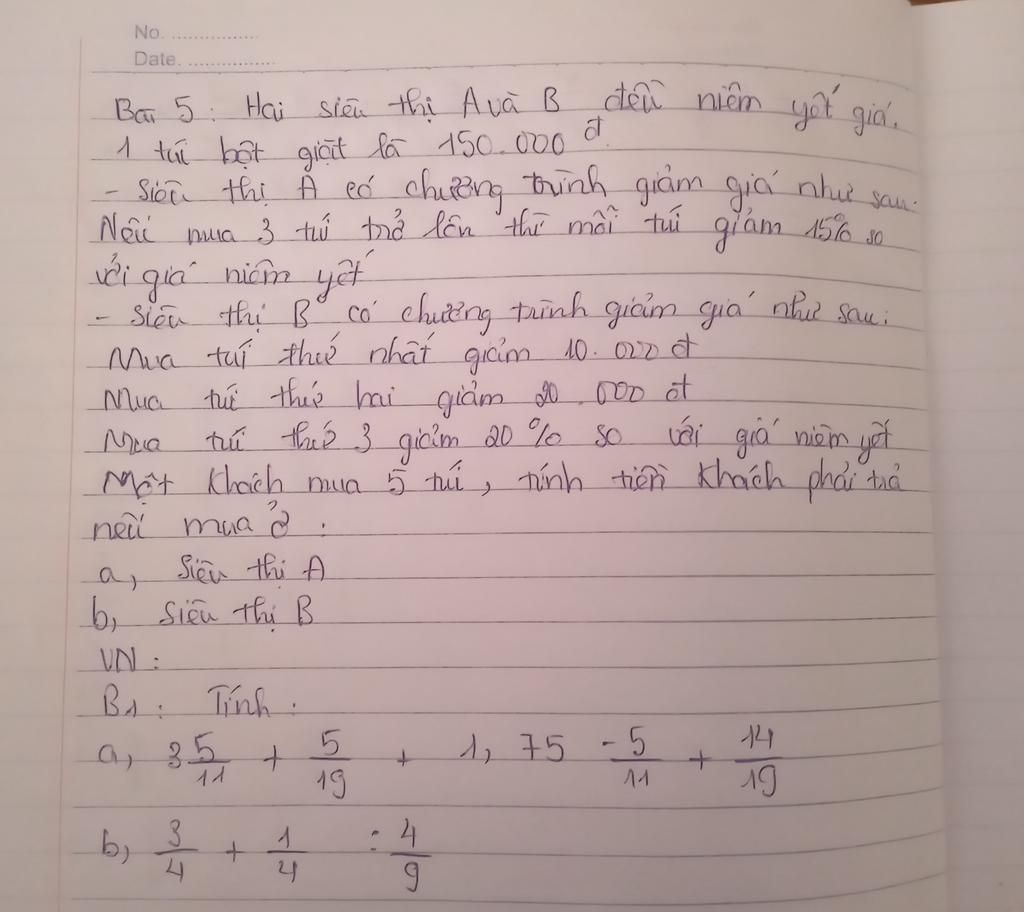 No. ................
Date. ................
Bài 5: Hai siêu thị A và B đều niêm yết giá.
1 túi bột giặt là 150.000 đ.
- Siêu thị A có chương trình giảm giá như sau:
Nếu mua 3 túi trở lên thì mỗi túi giảm 15% so
với giá niêm yết
- Siêu thị B có chương trình giảm giá như sau:
Mua túi thứ nhất giảm 10.000 đ
Mua túi thứ hai giảm 20.000 đ
Mua túi thứ 3 giảm 20% so với giá niêm yết
Một khách mua 5 túi, tính tiền khách phải trả
nếu mua ở:
a, Siêu thị A
b, Siêu thị B
VN:
B1: Tính:
a, 3 5/11 + 5/19 + 1,75 - 5/11 + 14/19
b, 3/4 + 1/4 : 4/9